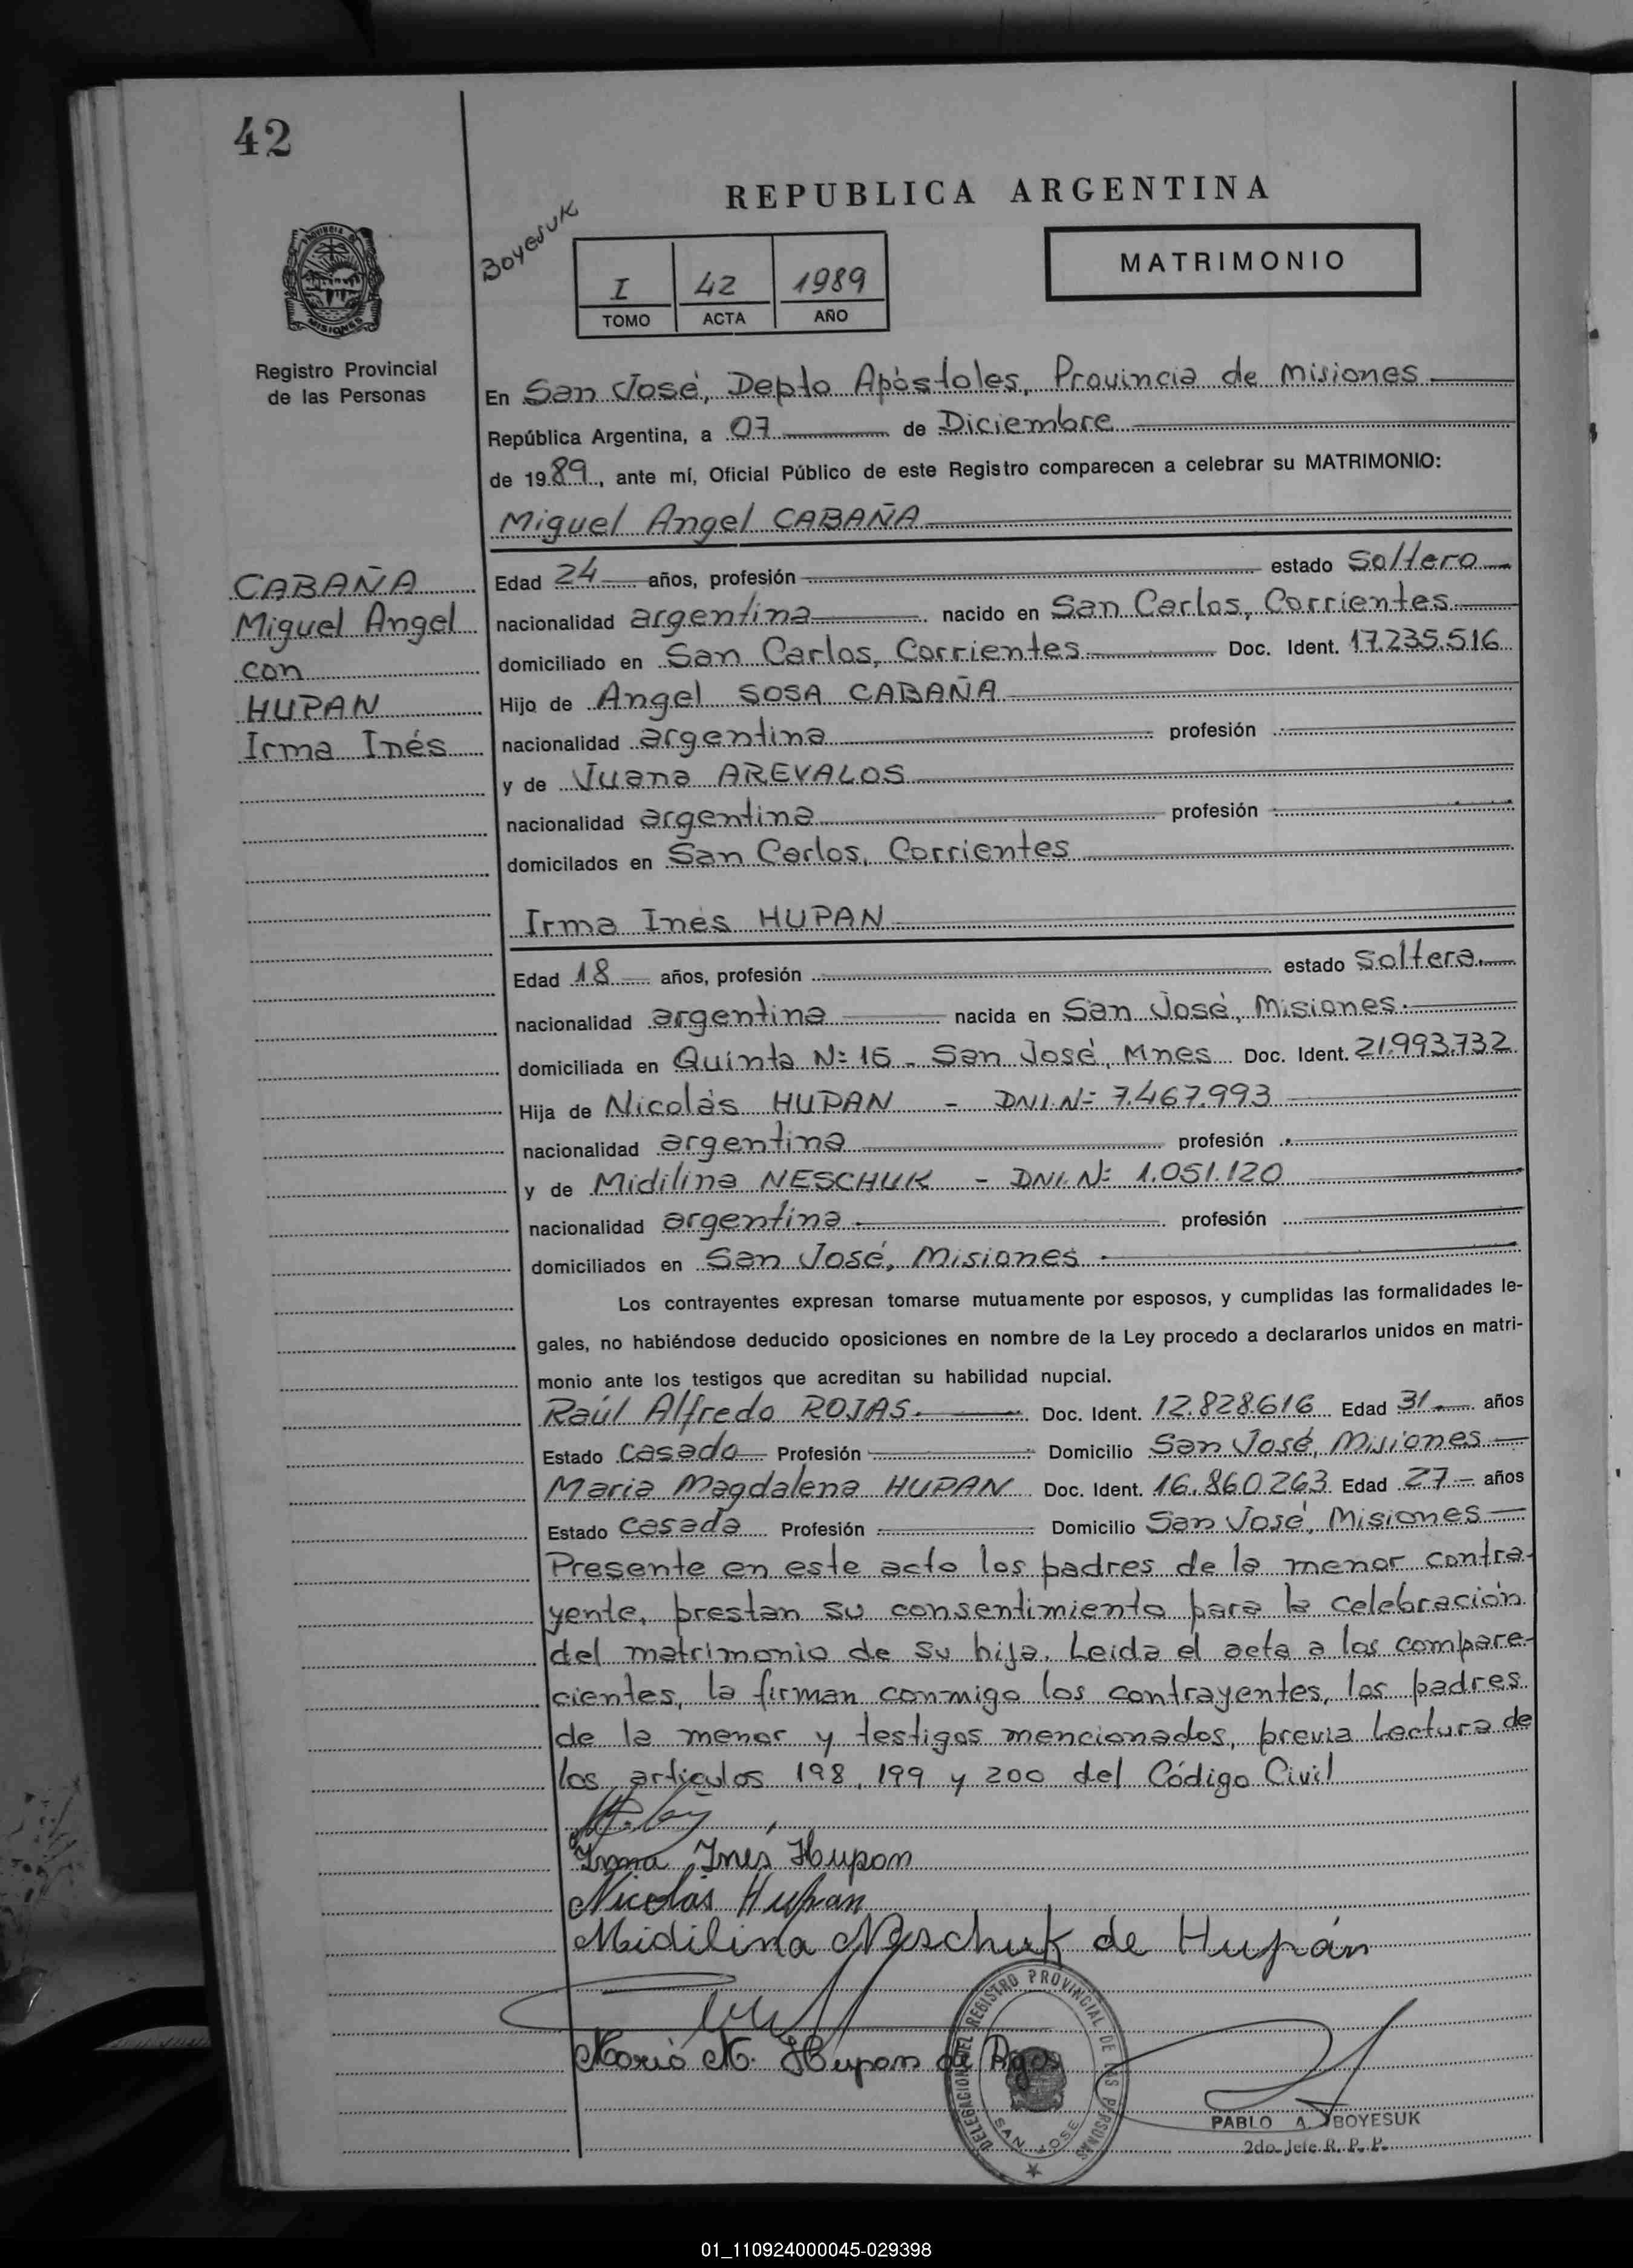 42
REPUBLICA ARGENTINA
Boyesuk
I 42 1989
TOMO ACTA AÑO
MATRIMONIO
PROVINCIA DE
MISIONES
Registro Provincial
de las Personas
En San José, Depto Apóstoles, Provincia de Misiones
República Argentina, a 07 de Diciembre
de 1989, ante mí, Oficial Público de este Registro comparecen a celebrar su MATRIMONIO:
Miguel Angel CABAÑA
CABAÑA
Miguel Angel
con
HUPAN
Irma Inés
Edad 24 años, profesión estado Soltero
nacionalidad argentina nacido en San Carlos, Corrientes
domiciliado en San Carlos, Corrientes Doc. Ident. 17.235.516
Hijo de Angel SOSA CABAÑA
nacionalidad argentina profesión
y de Juana AREVALOS
nacionalidad argentina profesión
domicilados en San Carlos, Corrientes
Irma Inés HUPAN
Edad 18 años, profesión estado Soltera
nacionalidad argentina nacida en San José, Misiones
domiciliada en Quinta Nº 16 - San José, Mnes Doc. Ident. 21.993.732
Hija de Nicolás HUPAN - DNI.Nº 7.467.993
nacionalidad argentina profesión
y de Midilina NESCHUK - DNI.Nº 1.051.120
nacionalidad argentina profesión
domiciliados en San José, Misiones
Los contrayentes expresan tomarse mutuamente por esposos, y cumplidas las formalidades le-
gales, no habiéndose deducido oposiciones en nombre de la Ley procedo a declararlos unidos en matri-
monio ante los testigos que acreditan su habilidad nupcial.
Raúl Alfredo ROJAS Doc. Ident. 12.828.616 Edad 31 años
Estado Casado Profesión Domicilio San José, Misiones
Maria Magdalena HUPAN Doc. Ident. 16.860.263 Edad 27 años
Estado Casada Profesión Domicilio San José, Misiones
Presente en este acto los padres de la menor contra-
yente, prestan su consentimiento para la celebración
del matrimonio de su hija. Leida el acta a los compare-
cientes, la firman conmigo los contrayentes, los padres
de la menor y testigos mencionados, previa lectura de
los articulos 198, 199 y 200 del Código Civil
Irma Inés Hupan
Nicolás Hupan
Midilina Neschuk de Hupán
Maria M. Hupan de
DELEGACION DEL REGISTRO PROVINCIAL DE LAS PERSONAS
SAN JOSE
PABLO A. BOYESUK
2do. Jefe R. P. P.
01_110924000045-029398